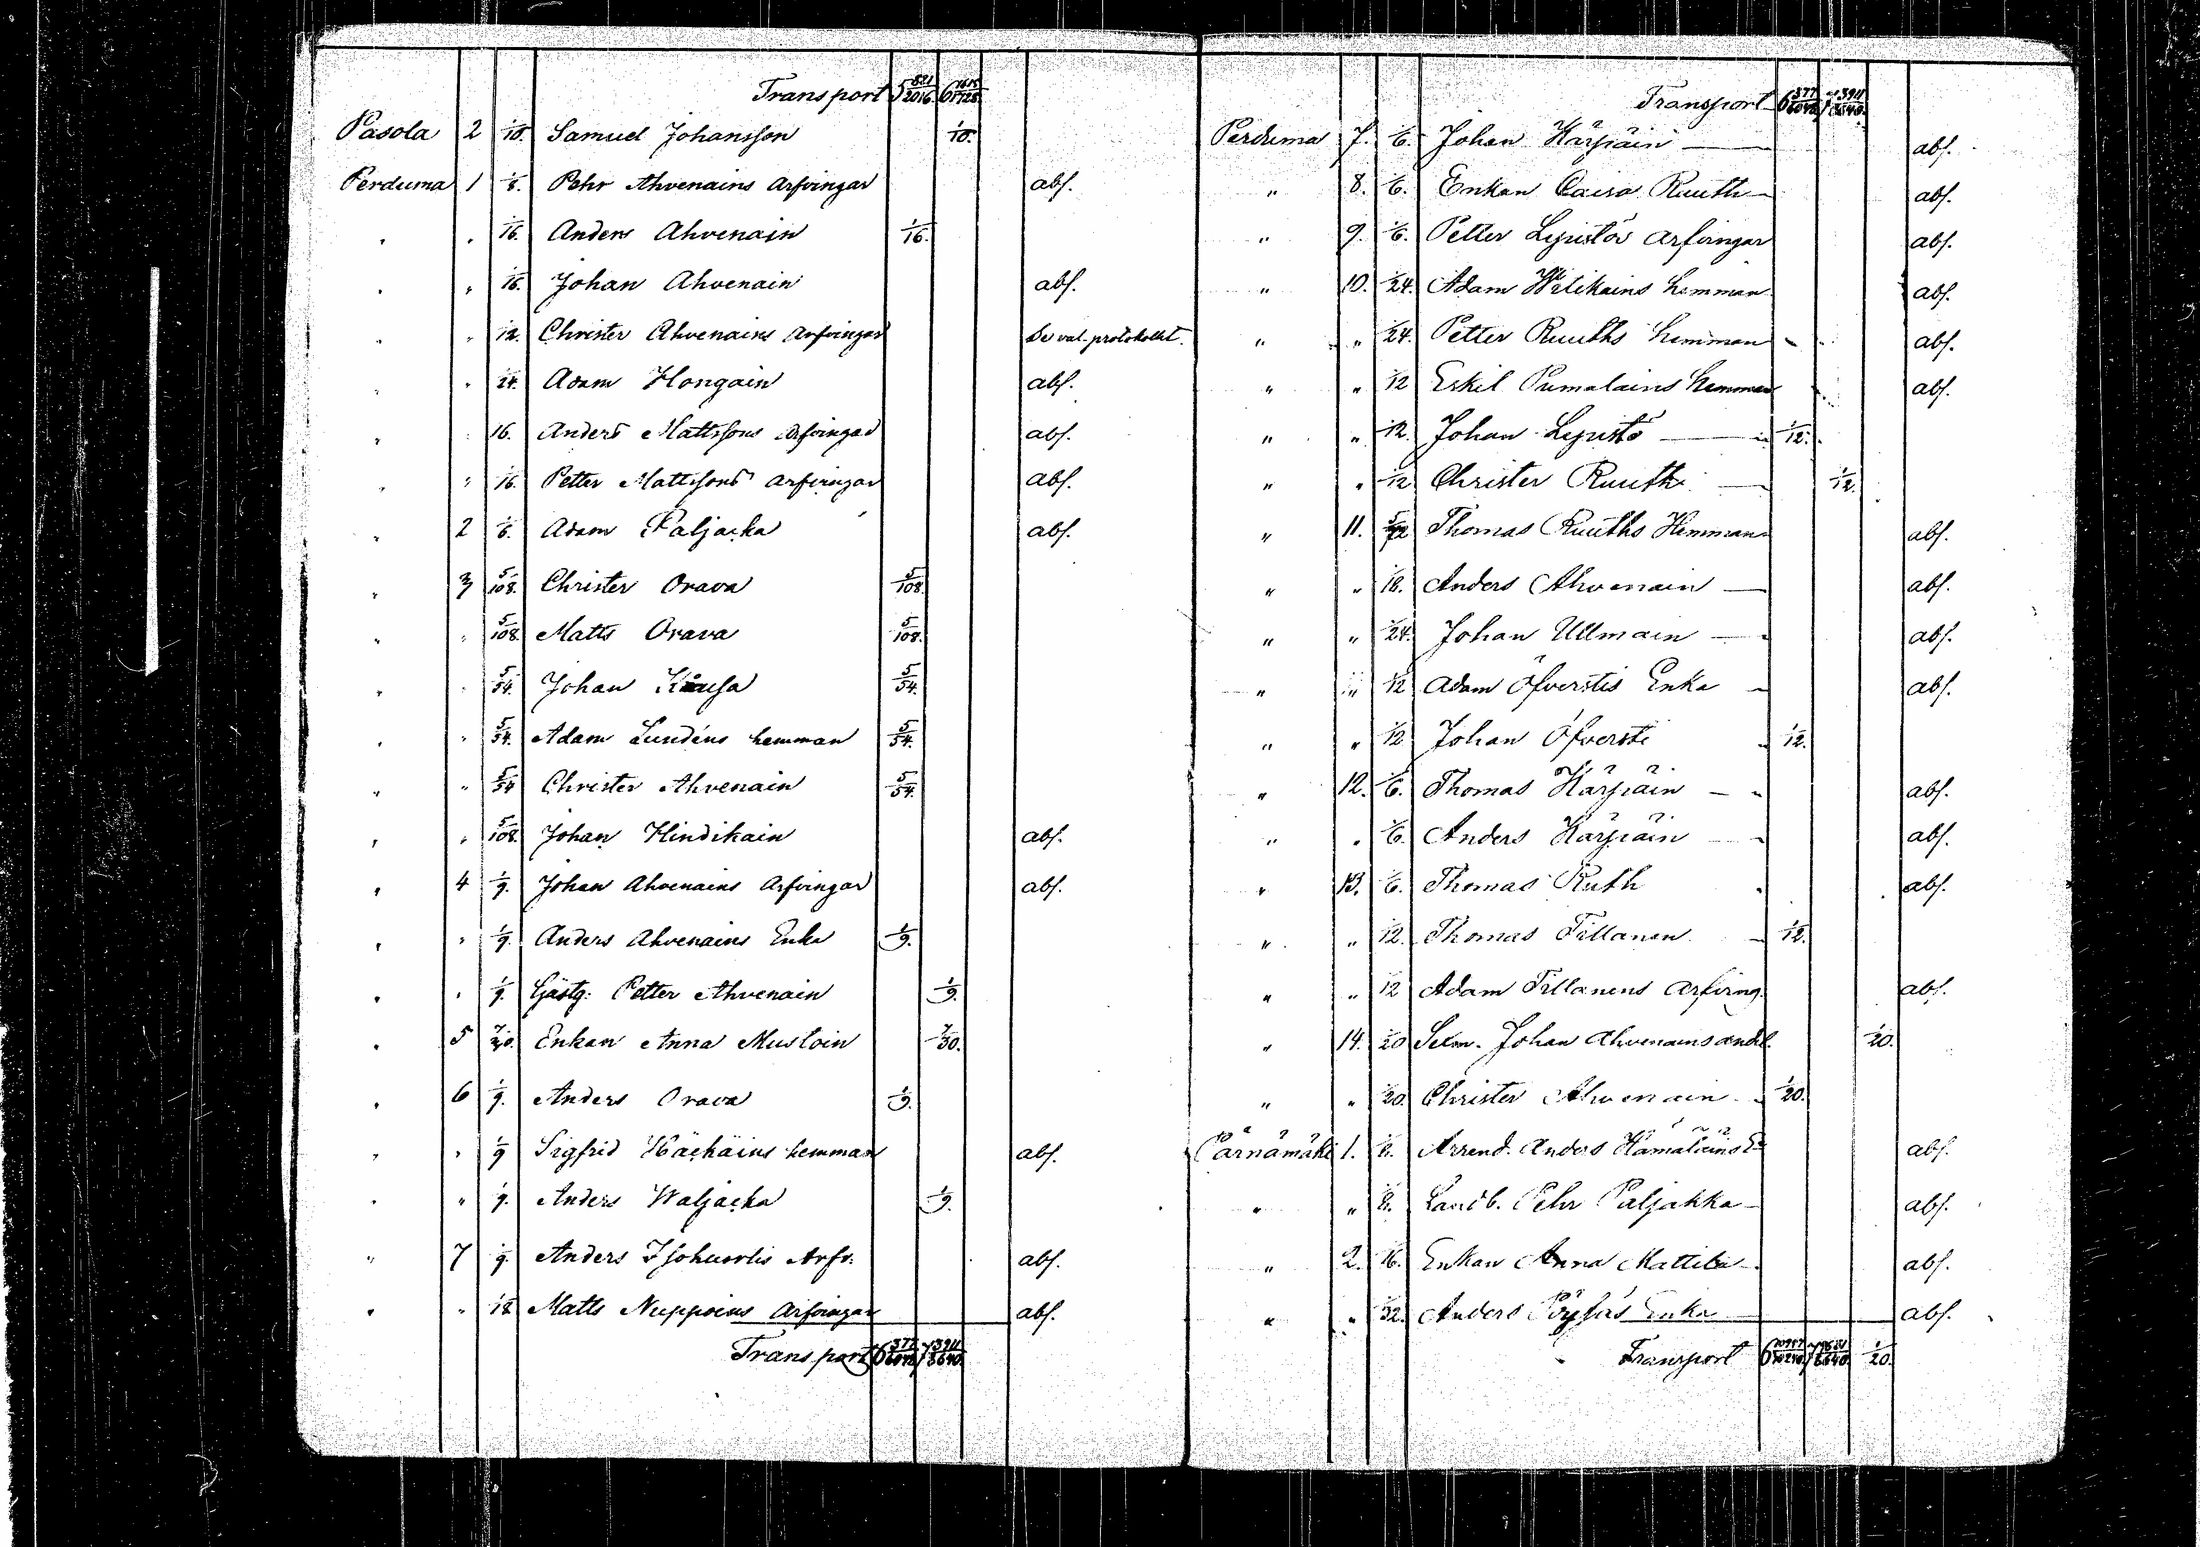 Transport 5 821/2016. 6
Pasola 2 1/10. Samuel Johansson 1/10.
Perduma 1 1/8. Pehr Ahvenains Arfvingar abs.
" " 1/16. Anders Ahvenain 1/16.
" " 1/16. Johan Ahvenain abs.
" " 1/12. Christer Ahvenains Arfvingar Se val-protokollet.
" " 1/24. Adam Hongain abs.
" " 16. Anders Mattssons Arfvingar abs.
" " 1/16. Petter Mattssons Arfvingar abs.
" 2 1/6. Adam Paljacka abs.
" 3 5/108. Christer Orava 5/108.
" " 5/108. Matts Orava 5/108.
" " 5/54. Johan 5/54.
" " 5/54. Adam Lundéns hemman 5/54.
" " 5/54 Christer Ahvenain 5/54.
" " 5/108. Johan Hindikain abs.
" 4 1/9. Johan Ahvenains Arfvingar abs.
" " 1/9. Anders Ahvenains Enka 1/9.
" " 1/9. Gästg: Petter Ahvenain 1/9.
" 5 7/30. Enkan Anna Mustoin 7/30.
" 6 1/9. Anders Orava 1/9.
" " 1/9 Sigfrid Häckäins hemman abs.
" " 1/9. Anders Waljacka 1/9.
" 7 1/9. Anders Arfv. abs.
" " 1/18 Matts Nuppoins Arfvingar abs.
Transport 6 377/6048. 7 3911/8640.
Transport 6 377/6048. 7 3911/8640.
Perduma 7. 1/6. Johan Kärpäin abs.
" 8. 1/6. Enkan Caisa Ruuth abs.
" 9. 1/6. Petter Lepistös Arfvingar abs.
" 10. 1/24. Adam hemman abs.
" " 1/24. Petter Ruuths hemman abs.
" " 1/12 Eskil Pumalains hemman abs.
" " 1/12. Johan Lepistö 1/12.
" " 1/12 Christer Ruuth 1/12.
" 11. Thomas Ruuths Hemman abs.
" " 1/18. Anders Ahvenain abs.
" " 1/24. Johan Ullmain abs.
" " 1/12 Adam Öfverstis Enka abs.
" " 1/12 Johan Öfversti 1/12.
" 12. 1/6. Thomas Kärpäin abs.
" " 1/6. Anders Kärpäin abs.
" 13. 1/6. Thomas Ruth abs.
" " 1/12. Thomas Tillanen 1/12.
" " 1/12 Adam Tillanens Arfving. abs.
" 14. 1/20 Johan Ahvenains andel. 1/20.
" " 1/20. Christer Ahvenain 1/20.
Pärnämäki 1. 1/8. Arrend. Anders Hämäläins abs.
" " 1/8. Landb. Pehr Paljakka abs.
" 2. 1/16. Enkan Anna Mattila abs.
" " 1/32. Anders Pöyhäs Enka abs.
Transport 6 7 1/20.